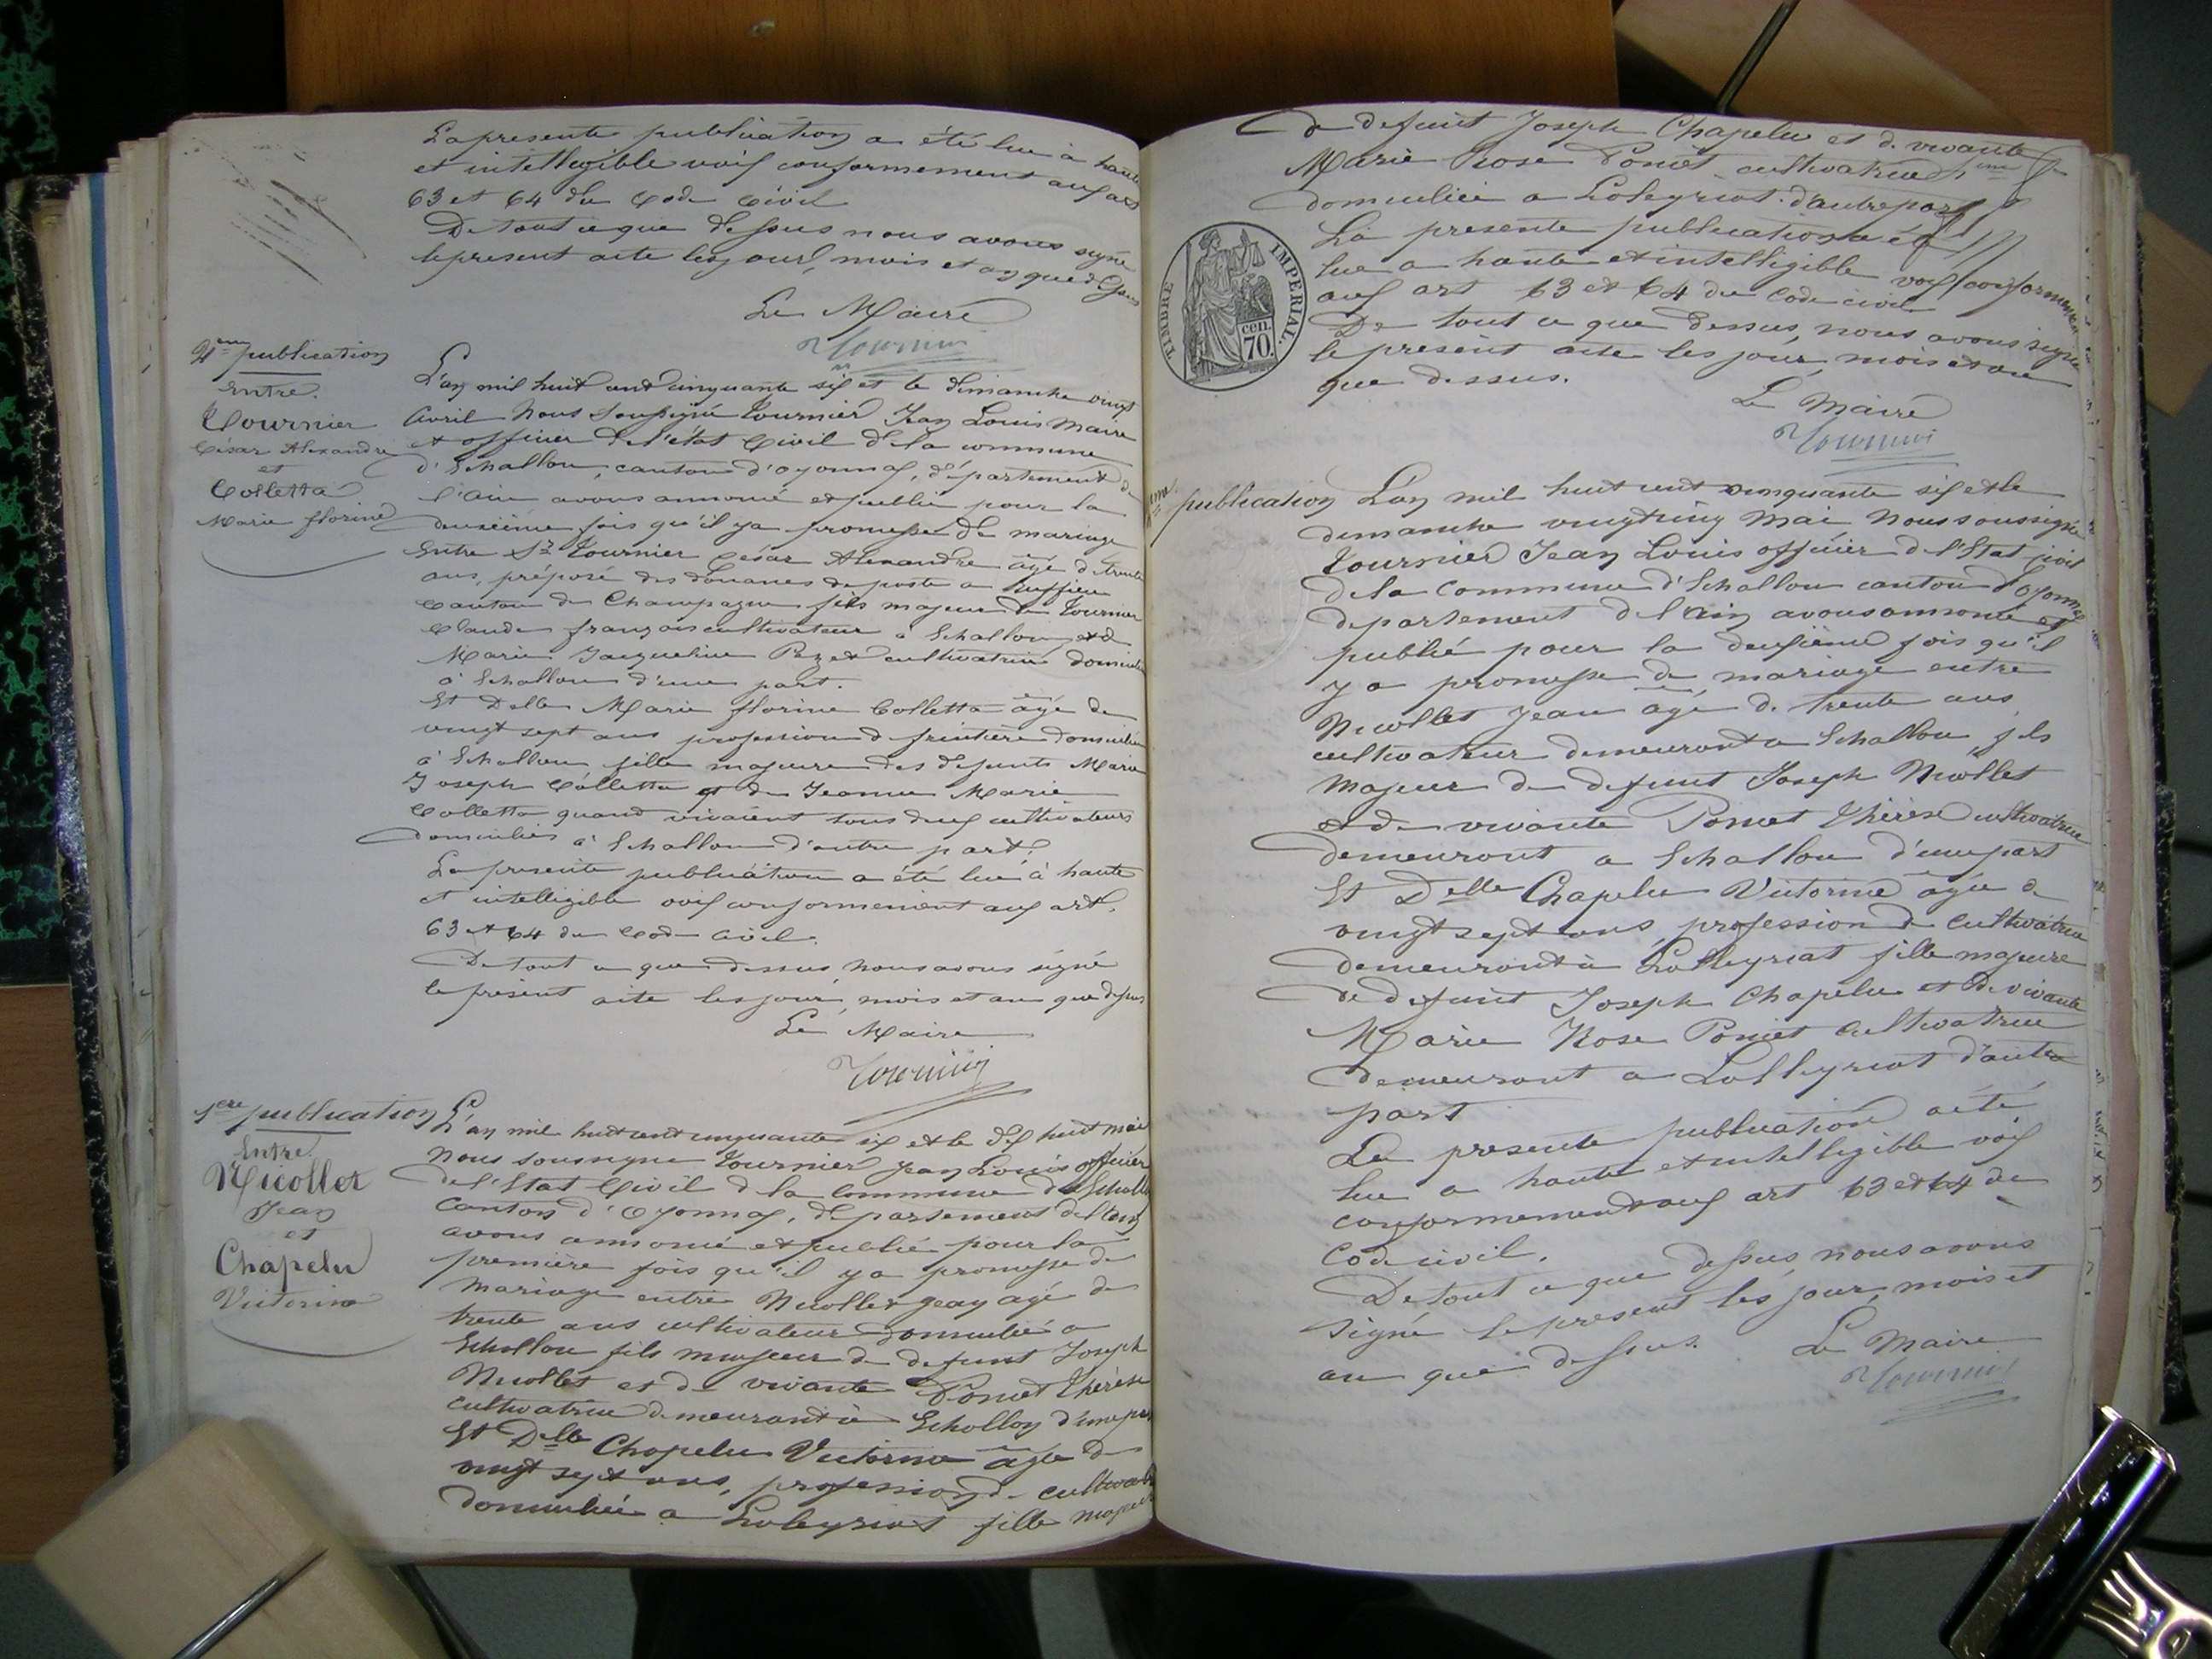 La presente publication a été lue à haute
et intelligible voix conformement aux art
63 et 64 du Code Civil
De tout ce que dessus nous avons signé
le present acte les jour, mois et an que dessus
Le Maire
Tournier
2eme publication
Entre
Tournier
César Alexandre
et
Colletta
Marie florine
L'an mil huit cent cinquante six et le dimanche vingt
avril Nous Soussigné Tournier Jean Louis Maire
et officier de l'état Civil de la commune
d'Echallon, canton d'Oyonnax, département de
l'Ain avons annoncé et publié pour la
deuxième fois qu'il y a promesse de mariage
Entre Sr Tournier César Alexandre âgé de trente
ans, préposé des douanes de poste a Ruffieu
Canton de Champagne fils majeur de Tournier
Claude françois cultivateur à Echallon et de
Marie Jacqueline Poncet cultivatrice domiciliés
à Echallon d'une part.
Et Delle Marie florine Colletta âgé de
vingt sept ans profession de domiciliée
à Echallon fille majeure des defunts Marie
Joseph Colletta et de Jeanne Marie
Colletta quand vivaient tous deux cultivateurs
domiciliés à Echallon d'autre part.
La presente publication a été lue à haute
et intelligible voix conformement aux art.
63 et 64 du Code Civil.
De tout ce que dessus nous avons signé
le présent acte les jour, mois et an que dessus
Le Maire
Tournier
1ere publication
Entre
Nicollet
Jean
et
Chapelu
Victorine
L'an mil huit cent cinquante six et le dix huit mai
Nous soussigné Tournier Jean Louis officier
de l'Etat Civil de la Commune d'Echallon
Canton d'Oyonnax, département de l'ain
avons annoncé et publié pour la
première fois qu'il y a promesse de
Mariage entre Nicollet Jean agé de
trente ans cultivateur domicilié a
Echallon fils majeur de defunt Joseph
Nicollet et de vivante Poncet Thérèse
cultivatrice demeurant à Echallon d'une part
Et Delle Chapelu Victorine agée de
vingt sept ans, profession de cultivatrice
domiciliée a Loleyriat fille majeure
de defunt Joseph Chapelu et de vivante
Marie Rose Poncet cultivatrice
domiciliée a Loleyriat d'autre part
La presente publication a été
lue a haute et intelligible voix conformement
aux art 63 et 64 du Code civil
De tout ce que dessus, nous avons signé
le présent acte les jour, mois et an
que dessus.
Le Maire
Tournier
TIMBRE IMPERIAL.
cen.
70.
2eme publication
L'an mil huit cent cinquante six et le
dimanche vingt cinq Mai Nous soussigné
Tournier Jean Louis officier de l'Etat civil
de la Commune d'Echallon canton d'Oyonnax
departement de l'Ain avons annoncé et
publié pour la deuxième fois qu'il
y a promesse de mariage entre
Nicollet Jean âgé de trente ans
cultivateur demeurant a Echallon, fils
Majeur de defunt Joseph Nicollet
et de vivante Poncet Thérèse cultivatrice
demeurant a Echallon d'une part
Et Delle Chapelu Victorine agée de
vingt sept ans, profession de cultivatrice
demeurant à Lolleyriat fille majeure
de defunt Joseph Chapelu et de vivante
Marie Rose Poncet cultivatrice
demeurant a Lolleyriat d'autre
part
La presente publication a été
lue a haute et intelligible voix
conformement aux art 63 et 64 du
Code civil.
De tout ce que dessus, nous avons
signé le present les jour, mois et
an que dessus.
Le Maire
Tournier